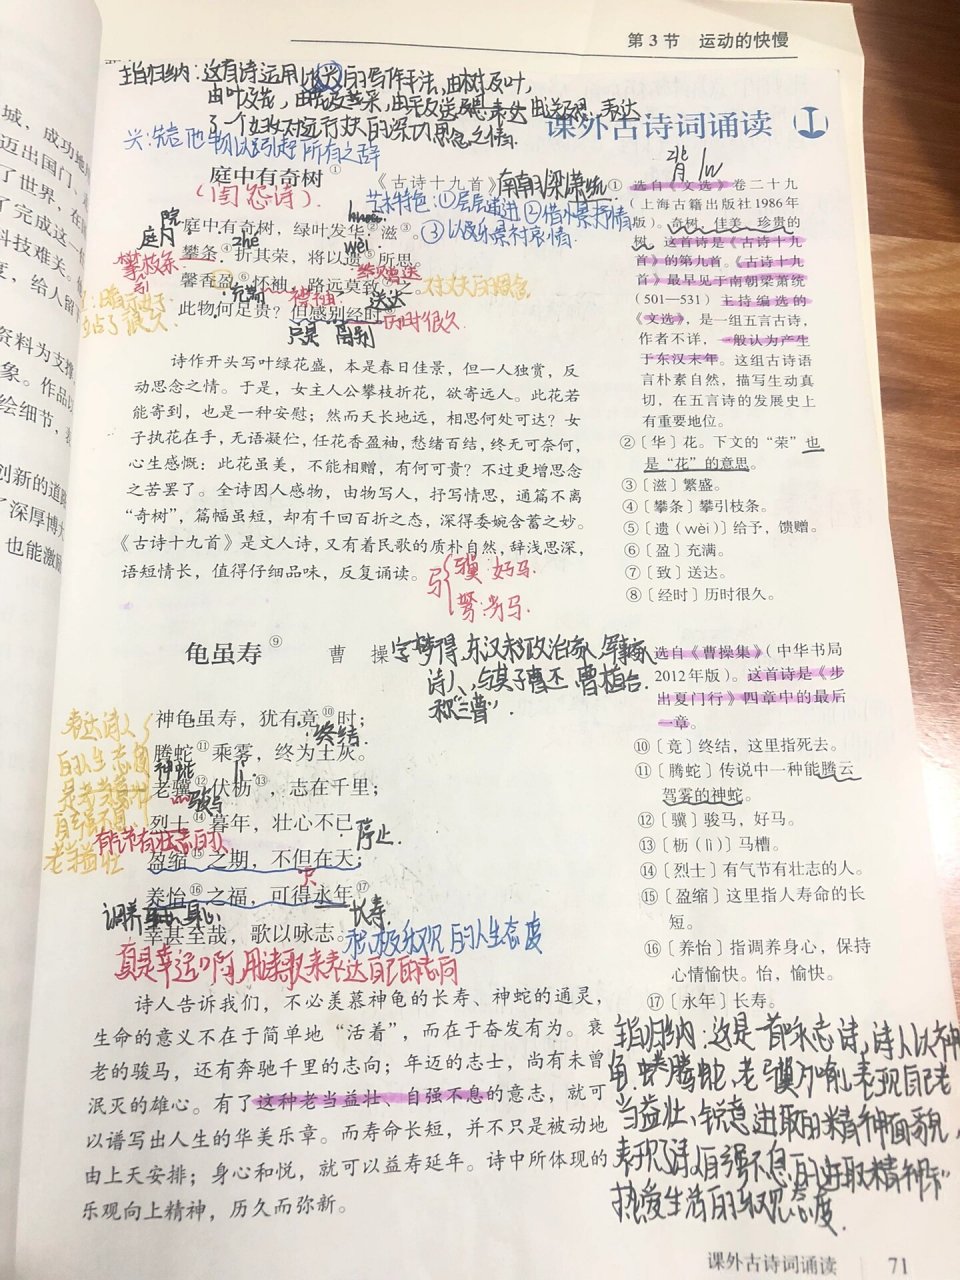 第3节 运动的快慢
主旨归纳：这首诗运用比兴的写作手法，由树及叶，
由叶及花，由花及采，由采及送，由送及思，表达
了一个妇女对远行丈夫的深切思念之情。
兴：先言他物以引起所有之辞
课外古诗词诵读
背
城，成功地
迈出国门、
了世界，在
了完成这一
科技难关。
度，给人留
资料为支撑
象。作品以
绘细节，
创新的道路
了深厚博大
也能激励
庭中有奇树①
《古诗十九首》
南朝梁萧统
（闺怨诗）
艺术特色：①层层递进 ②借景抒情
③以乐景衬哀情.
院
庭中有奇树，绿叶发华②滋③。
庭
zhé
wèi
攀条④折其荣，将以遗⑤所思。
攀枝条
给 赠送
馨香盈⑥怀袖，路远莫致⑦之。
对丈夫的思念
充满
襟袖
送达
此物何足贵？但感别经时⑧。
历时很久
只是 离别
诗作开头写叶绿花盛，本是春日佳景，但一人独赏，反
动思念之情。于是，女主人公攀枝折花，欲寄远人。此花若
能寄到，也是一种安慰；然而天长地远，相思何处可达？女
子执花在手，无语凝伫，任花香盈袖，愁绪百结，终无可奈何，
心生感慨：此花虽美，不能相赠，有何可贵？不过更增思念
之苦罢了。全诗因人感物，由物写人，抒写情思，通篇不离
“奇树”，篇幅虽短，却有千回百折之态，深得委婉含蓄之妙。
《古诗十九首》是文人诗，又有着民歌的质朴自然，辞浅思深，
语短情长，值得仔细品味，反复诵读。
骥：好马.
驽：劣马.
① 选自《文选》卷二十九
（上海古籍出版社1986年
版）。奇树，佳美、珍贵的
树。这首诗是《古诗十九
首》的第九首。《古诗十九
首》最早见于南朝梁萧统
（501—531）主持编选的
《文选》，是一组五言古诗，
作者不详，一般认为产生
于东汉末年。这组古诗语
言朴素自然，描写生动真
切，在五言诗的发展史上
有重要地位。
②〔华〕花。下文的“荣”也
是“花”的意思。
③〔滋〕繁盛。
④〔攀条〕攀引枝条。
⑤〔遗（wèi）〕给予，馈赠。
⑥〔盈〕充满。
⑦〔致〕送达。
⑧〔经时〕历时很久。
龟虽寿⑨
曹 操
字孟得，东汉末政治家、军事家、
诗人，与其子曹丕、曹植合
称“三曹”.
神龟虽寿，犹有竟⑩时；
终结.
腾蛇⑪乘雾，终为土灰。
神蛇
lì
老骥⑫伏枥⑬，志在千里；
骏马
烈士⑭暮年，壮心不已。
停止.
有气节有壮志的人
盈缩⑮之期，不但在天；
养怡⑯之福，可得永年⑰。
调养 身心
长寿.
幸甚至哉，歌以咏志。
积极乐观的人生态度
真是幸运啊，用诗歌来表达自己的志向
表达诗人
的人生态度
是老当益壮
自强不息
老当益壮
诗人告诉我们，不必羡慕神龟的长寿、神蛇的通灵，
生命的意义不在于简单地“活着”，而在于奋发有为。衰
老的骏马，还有奔驰千里的志向；年迈的志士，尚有未曾
泯灭的雄心。有了这种老当益壮、自强不息的意志，就可
以谱写出人生的华美乐章。而寿命长短，并不只是被动地
由上天安排；身心和悦，就可以益寿延年。诗中所体现的
乐观向上精神，历久而弥新。
选自《曹操集》（中华书局
2012年版）。这首诗是《步
出夏门行》四章中的最后
一章。
⑩〔竟〕终结，这里指死去。
⑪〔腾蛇〕传说中一种能腾云
驾雾的神蛇。
⑫〔骥〕骏马，好马。
⑬〔枥（lì）〕马槽。
⑭〔烈士〕有气节有壮志的人。
⑮〔盈缩〕这里指人寿命的长
短。
⑯〔养怡〕指调养身心，保持
心情愉快。怡，愉快。
⑰〔永年〕长寿。
主旨归纳：这是一首咏志诗，诗人以神
龟、腾蛇、老骥为喻，表现自己老
当益壮、锐意进取的精神面貌，
表现了诗人自强不息的进取精神
热爱生活的乐观态度.
课外古诗词诵读 71